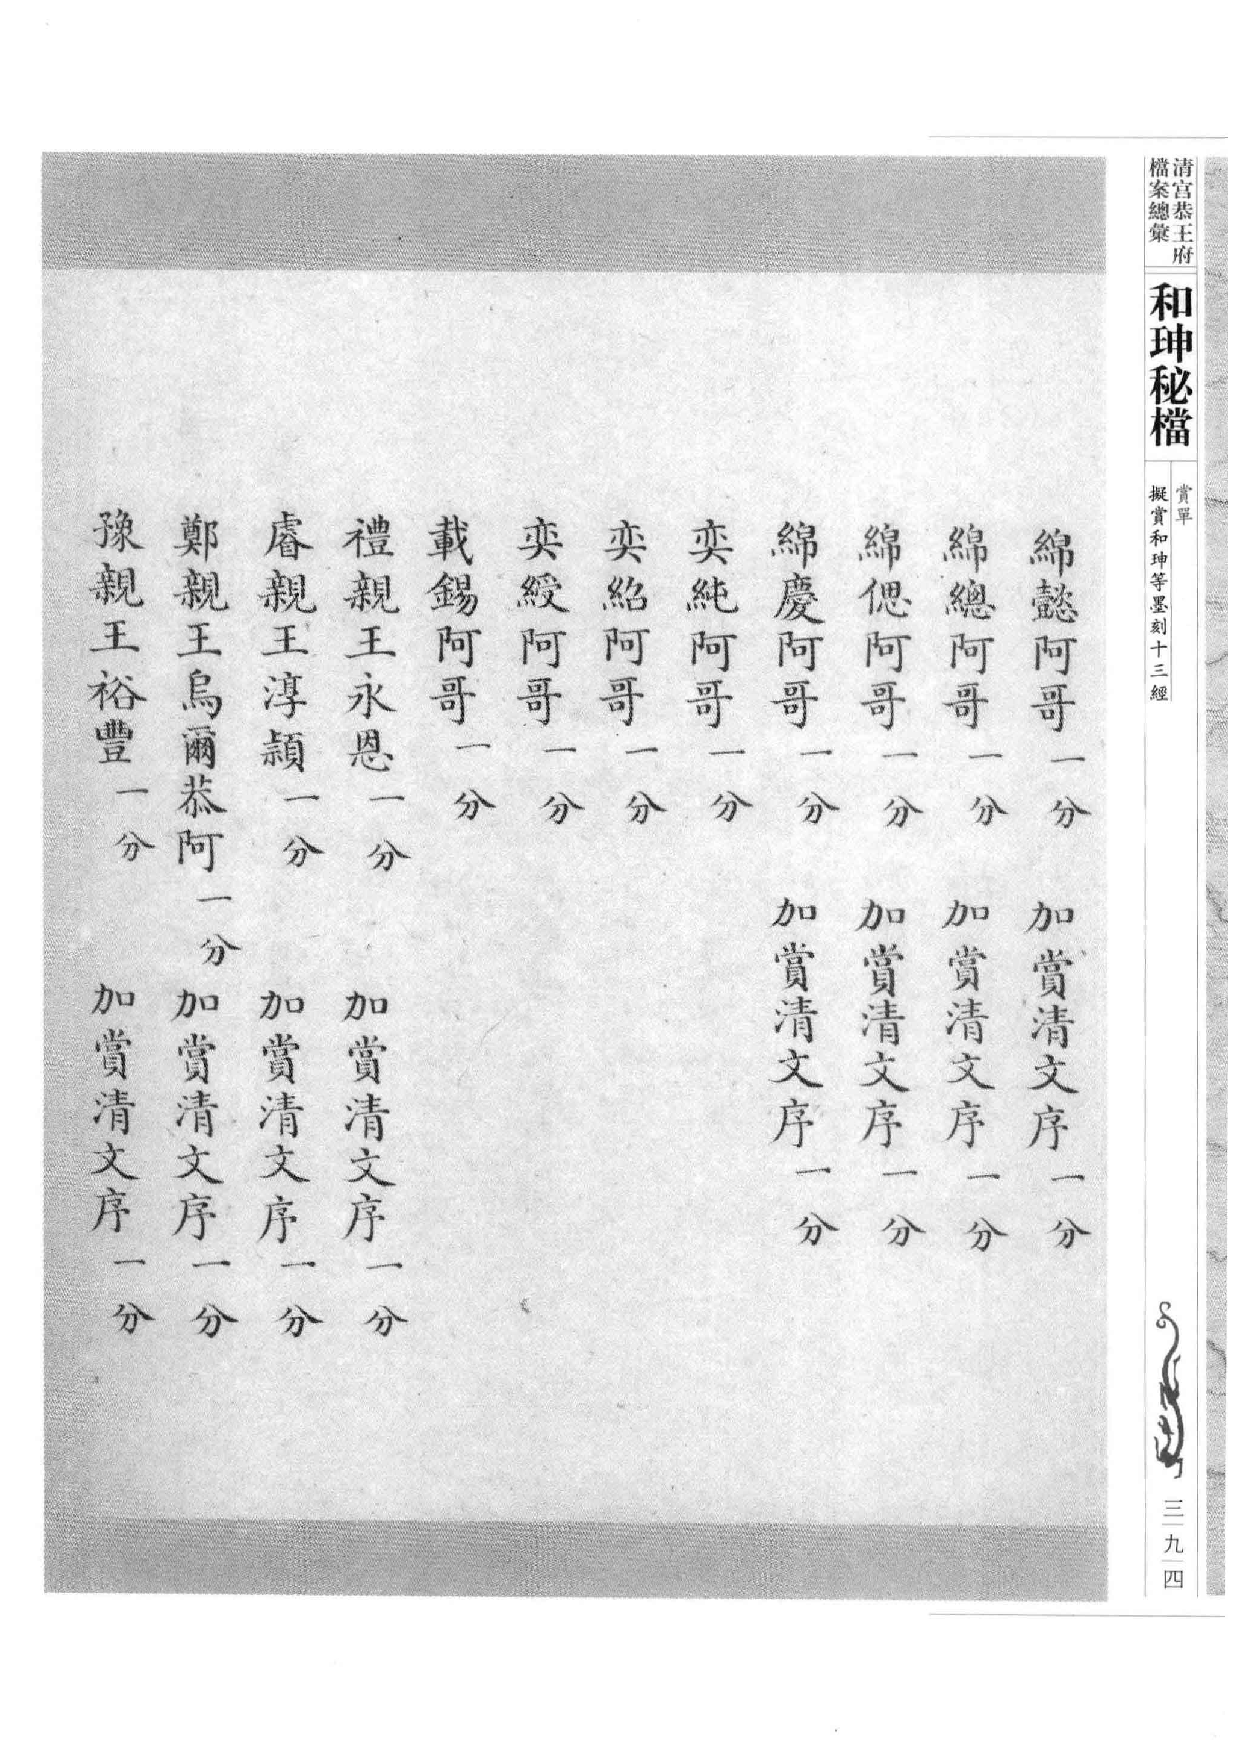 清宮恭王府
檔案總彙
和珅秘檔
賞單
擬賞和珅等墨刻十三經
三九四
綿懿阿哥一分 加賞清文序一分
綿總阿哥一分 加賞清文序一分
綿偲阿哥一分 加賞清文序一分
綿慶阿哥一分 加賞清文序一分
奕純阿哥一分
奕紹阿哥一分
奕綬阿哥一分
載錫阿哥一分
禮親王永恩一分 加賞清文序一分
睿親王淳穎一分 加賞清文序一分
鄭親王烏爾恭阿一分 加賞清文序一分
豫親王裕豐一分 加賞清文序一分